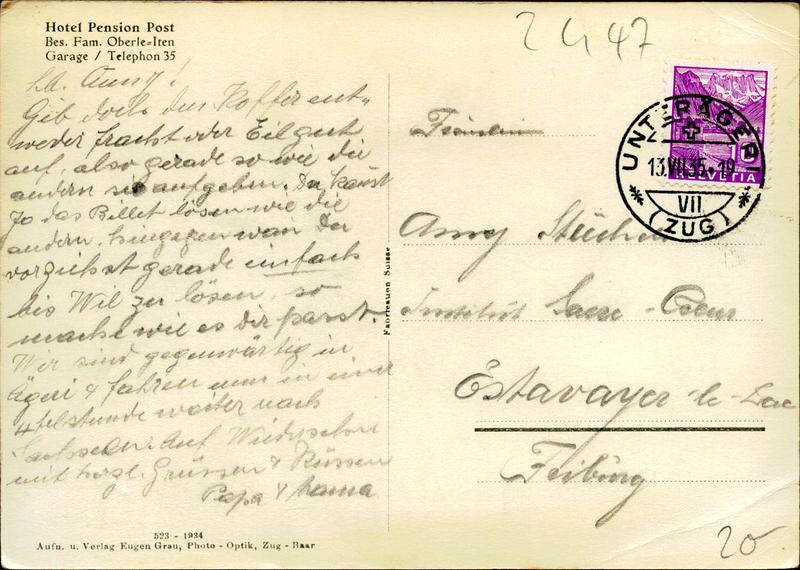 Hotel Pension Post
Bes. Fam. Oberle-Iten
Garage / Telephon 35
2447
Lb. Amy!
Gib doch den Koffer ent-
weder fracht oder Eilgut
auf, also gerade so wie die
andern sie aufgeben. Du kannst
Jo das Billet lösen wie die
andern, hingegen wan Du
vorziehst gerade einfach
bis Wil zu lösen, so
mache wie es dir passt.
Wir sind gegenwärtig in
Ägeri & fahren nun in einer
4telstunde weiter nach
Sachseln. Auf Wiedersehn
mit hrzl. Grüssen & Küssen
Papa & Mama
523 - 1934
Aufn. u. Verlag Eugen Grau, Photo - Optik, Zug - Baar
Fabrication Suisse
HELVETIA
UNTERÄGERI
13.VII.35-19
VII
(ZUG)
Fräulein
Amy
Institut Sacre-Coeur
Estavayer-le-Lac
Freiburg
20